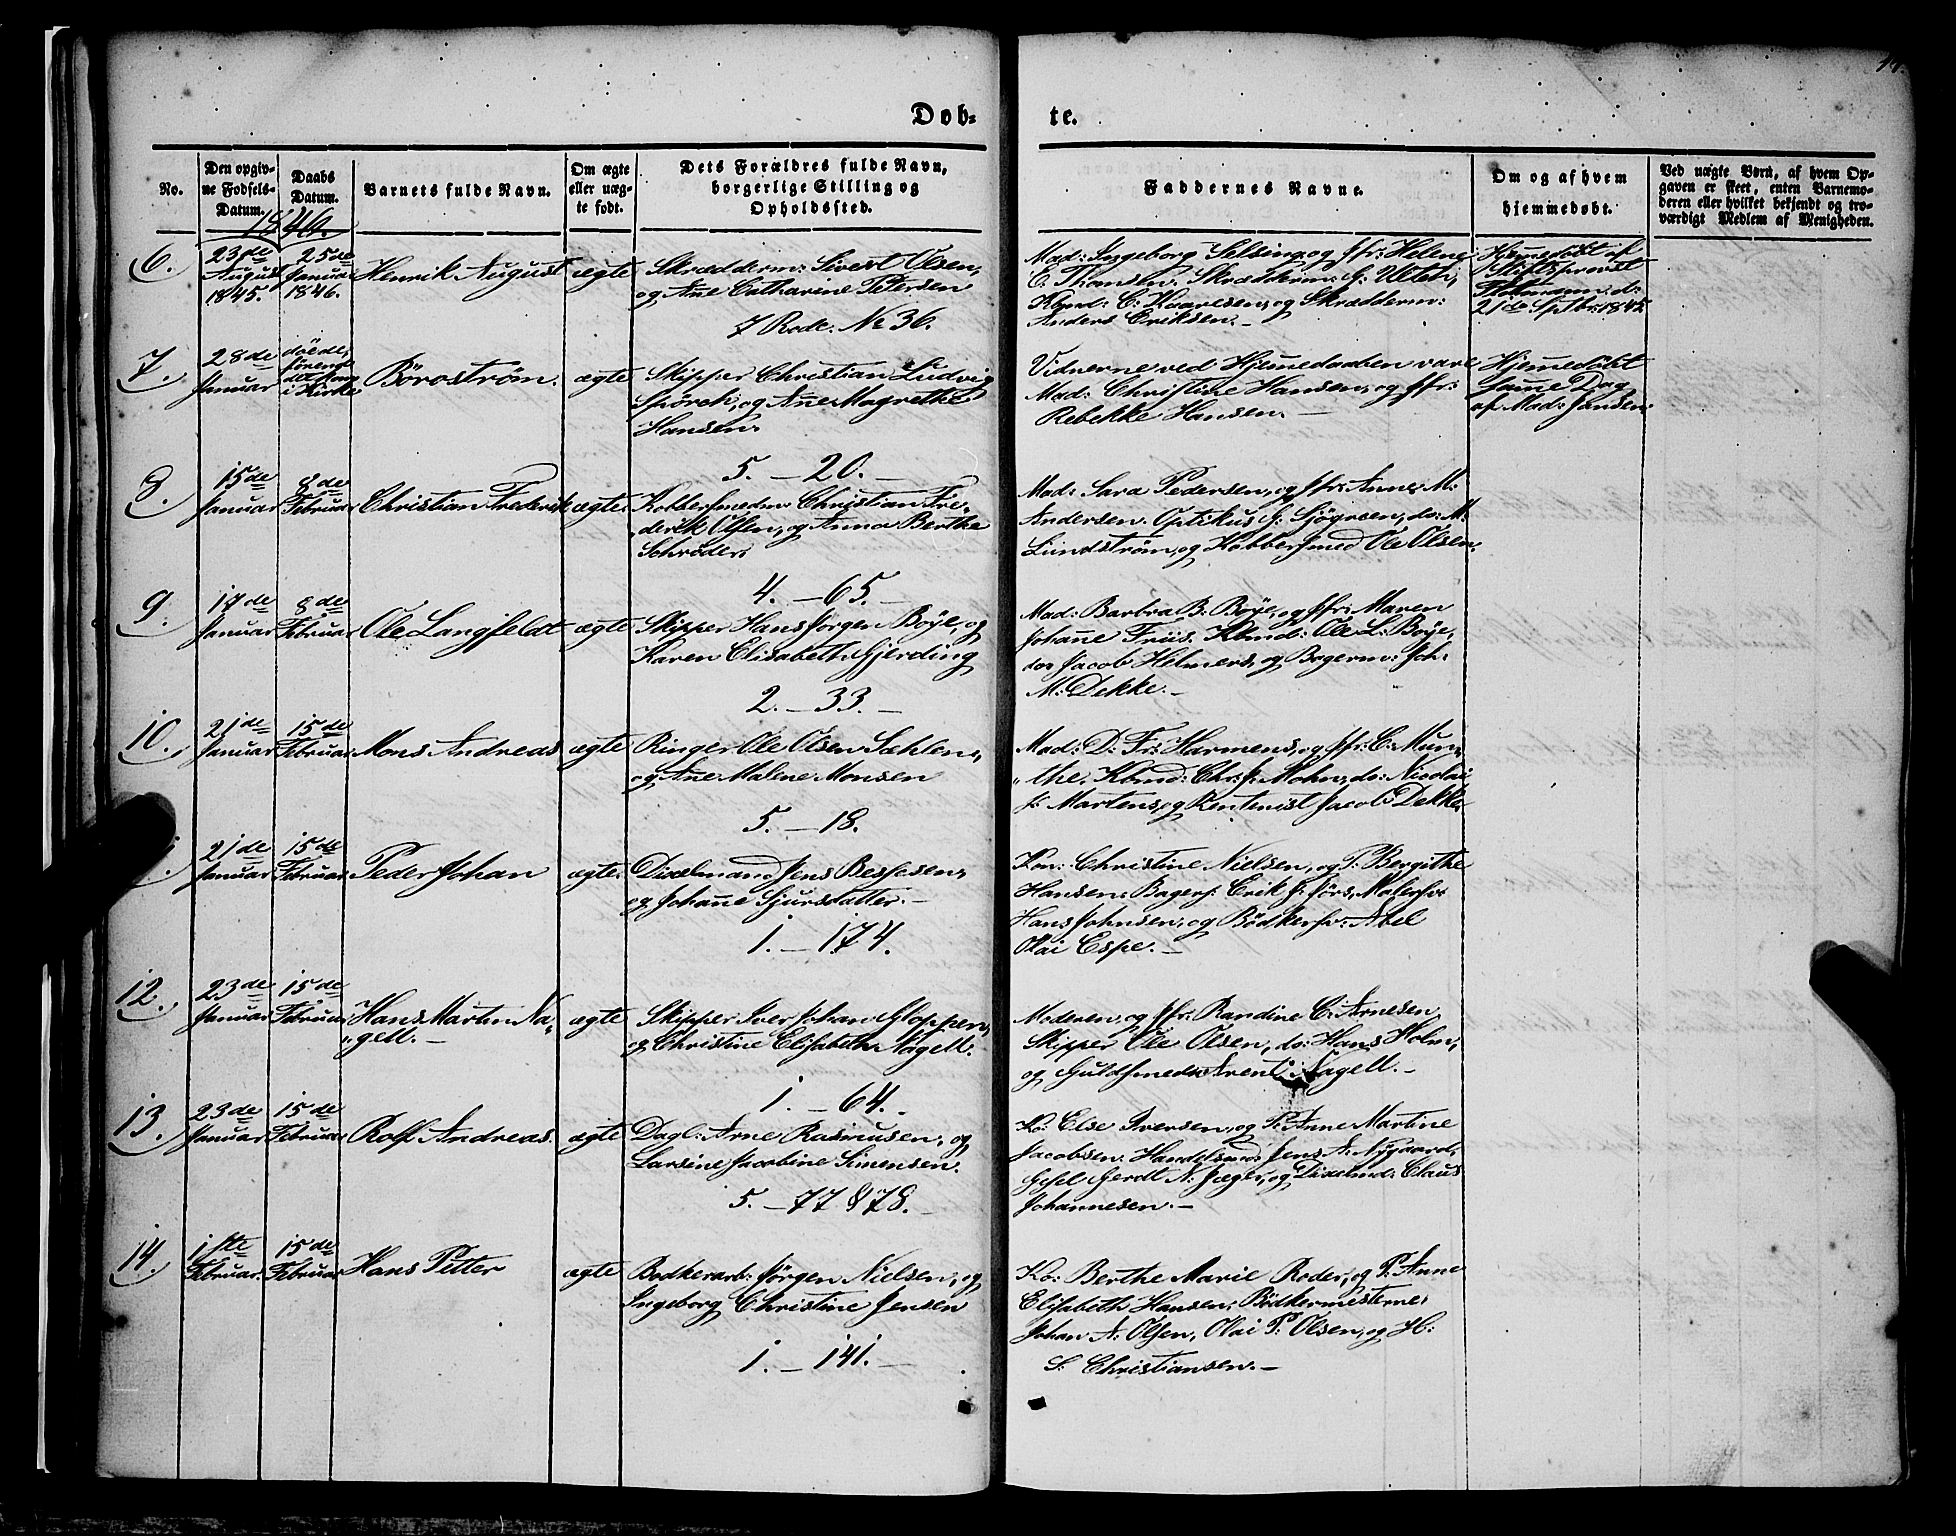 Døb-
te.
No.
Den opgiv-
ne Fødsels-
Datum.
Daabs
Datum.
1846.
Barnets fulde Navn.
Om ægte
eller uæg-
te født.
Dets Forældres fulde Navn,
borgerlige Stilling og
Opholdssted.
Faddernes Navne.
Om og af hvem
hjemmedøbt.
Ved uægte Børn, af hvem Op-
gaven er skeet, enten Barnemo-
deren eller hvilket bekjendt og tro-
værdigt Medlem af Menigheden.
6.
23de
August
1845.
25de
Januar
1846.
Henrik August
ægte
Skrædderm: Sivert Olsen,
og Ane Catharine Petersen
7 Rode. No 36.
Mad: Ingeborg Selsing, og Jfr: Helene
E. Thomsen. Skrædderm: G:
Kbmd: C: Kaaresen, og Skrædderm:
Anders Eriksen.
Hjemedøbt af
Stiftsprovst
d:
21de Sptbr: 1845
7.
28de
Januar
døede,
i Kirke
ægte
Skipper Christian Ludvig
og Ane Magrethe
Hansen.
5. – 20. –
Vidnerne ved Hjemedaaben vare
Mad: Christine Hansen, og Jfr:
Rebekke Hansen. –
Hjemedöbt
same Dag
af Mad: Jansen.
8.
15de
Januar
8de
Februar
Christian Frederik
ægte.
Kobbersmedm: Christian Fre-
derik Olsen, og Anna Berthe
Schrøder.
4. – 65. –
Mad: Sara Pedersen, og Jfr: Anne M:
Andersen. Optikus G: Sjøgreen, do: M:
Lundstrøm, og Kobbersmed Ole Olsen.
9.
17de
Januar
8de
Februar
Ole Langfeldt
ægte
Skipper Hans Jørgen Böÿe, og
Karen Elisabeth Gjerding
2. – 33. –
Mad: Barbra B: Böÿe, og Jfr: Maren
Johane Friis. Kbmd: Ole L: Böÿe,
do: Jacob Helmers, og Bagerm: Joh:
M: Dekke. –
10.
21de
Januar
15de
Februar
Mons Andreas
ægte
Ringer Ole Olsen Sæhlen,
og Ane Malene Monsen
5. – 18.
Mad: D: Fr: Harmens, og Jfr: C: Mun-
the. Kbmd: Chr: J: Mohn, do: Nicolai
J: Martens, og Kontorist Jacob Dekke
21de
Januar
15de
Februar
Peder Johan
ægte.
Dixelmand Jens Bessesen,
og Johane Sjursdatter. –
1. – 174.
Kon: Christine Nielsen, og P: Bergithe
Hansen. Bagers: Erik J: Jörs, Malersv:
Hans Johnsen, og Bödkersv: Abel
Olai Espe. –
12.
23de
Januar
15de
Februar
Hans Martin Na-
gell. –
ægte
Skipper Iver Johan Gloppen,
og Christine Elisabeth Nagell.
1. – 64. –
Moderen, og Jfr: Randine C: Arnesen.
Skipper Ole Olsen, do: Hans Holm,
og Guldsmedm: Arent Nagell. –
13.
23de
Januar
15de
Februar
Rolf Andreas.
ægte
Dagl: Arne Rasmusen, og
Larsine Jacobine Simensen.
5. – 77 & 78. –
Ko: Else Iversen, og P: Anne Martine
Jacobsen. Handelsmd: Jens A: Nÿgaard,
Gesel Gerdt N: Jæger, og Dixelmd: Claus
Johannesen. –
14.
1ste
Februar.
15de
Februar
Hans Petter
ægte
Bødkerarb: Jørgen Nielsen, og
Ingeborg Christine Jensen
1. – 141. –
Ko: Berthe Marie Roder, og P: Anne
Elisabeth Hansen. Bödkermesterne:
Johan A: Olsen, Olai P: Olsen, og H:
S: Christiansen. –